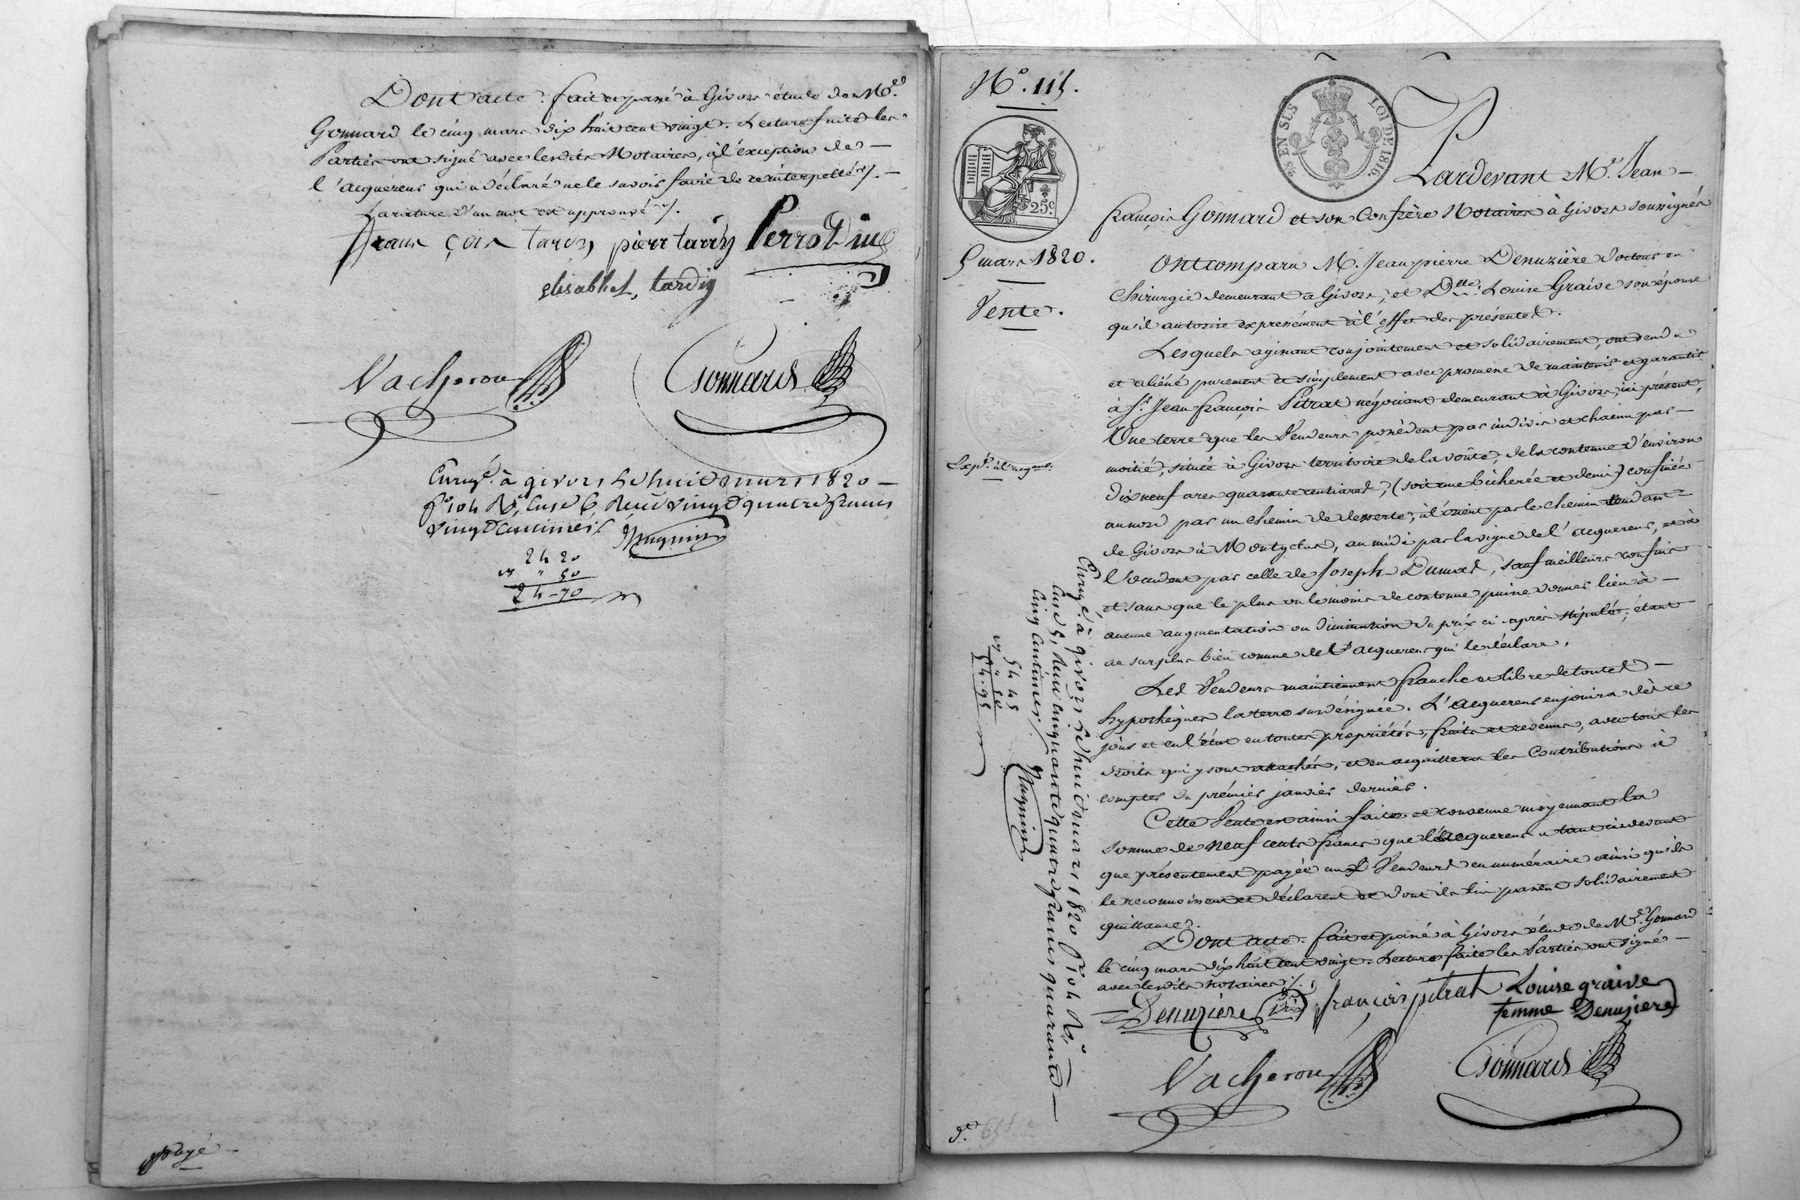 Dont acte. fait et passé à Givors étude de Me.
Gonnard le cinq mars dix huit cent vingt. Lecture faite les
Parties ont signé avec lesdits Notaires, à l'exception de
l'acquereur qui a déclaré ne le savoir faire de ce interpellé ./.
La rature d'un mot est approuvé ./.
pierre tardy Perrodin
elisabhet, tardy
Vacheron Gonnard
Enregé. à givors le huit mars 1820
fo 104 Ro, Case 6, Reçu vingt quatre francs
vingt Centimes.
24 20
" 50
24-70
payé
No. 115.
25c
5 mars 1820.
Vente.
EN SUS LOI DE 1816.
Pardevant Me. Jean
françois Gonnard et son Confrère Notaires à Givors soussignés
Ont comparu M. Jean pierre Denuzière docteur en
Chirurgie demeurant à Givors, et Dlle. Louise Graive son épouse
qu'il autorise expressément à l'effet des présentes.
Lesquels agissant conjointement et solidairement, ont vendu
et aliéné purement et simplement avec promesse de maintenir et garantir
à Sr. Jean françois Pitrat négociant demeurant à Givors, ici présent,
Une terre que les Vendeurs possèdent par indivis et chacun par
moitié, située à Givors territoire de la voûte, de la contenue d'environ
dix neuf ares quarante centiares, (soit une bicherée et demi) confinée
au nord par un chemin de desserte, à l'orient par le chemin tendant
de Givors à Montgelas, au midi par la vigne de l'acquereur, et à
l'occident par celle de Joseph Dumas, sauf meilleurs confins
et sans que le plus ou le moins de contenue puisse donner lieu à
aucune augmentation ou diminution du prix ci-après stipulé, étant
au surplus bien connue de l'acquereur qui le déclare.
Les Vendeurs maintiennent franche et libre de toutes
hypothèques la terre sus désignée. L'acquereur en jouira dès ce
jour et en l'état en toutes propriétés, fruits et revenus, avec tous les
droits qui y sont attachés, et en acquittera les Contributions à
compter du premier janvier dernier.
Cette Vente est ainsi faite et consentie moyennant la
somme de neuf cents francs que l'acquereur a tant ci devant
que présentement payée aux Vendeurs en numéraire ainsi qu'ils
le reconnoissent et déclarent et dont ils lui passent solidairement
quittance.
Dont acte. fait et passé à Givors étude de Me. Gonnard
le cinq mars dix huit cent vingt. Lecture faite les Parties ont signé
avec lesdits notaires ./.
Denuzière françois pitrat Louise graive
femme Denuziere
Vacheron Gonnard
Enregé. à givors le huit mars 1820 fo 104 Ro,
Case 5, Reçu cinquante quatre francs quarante
cinq Centimes.
54 45
" 50
54-95